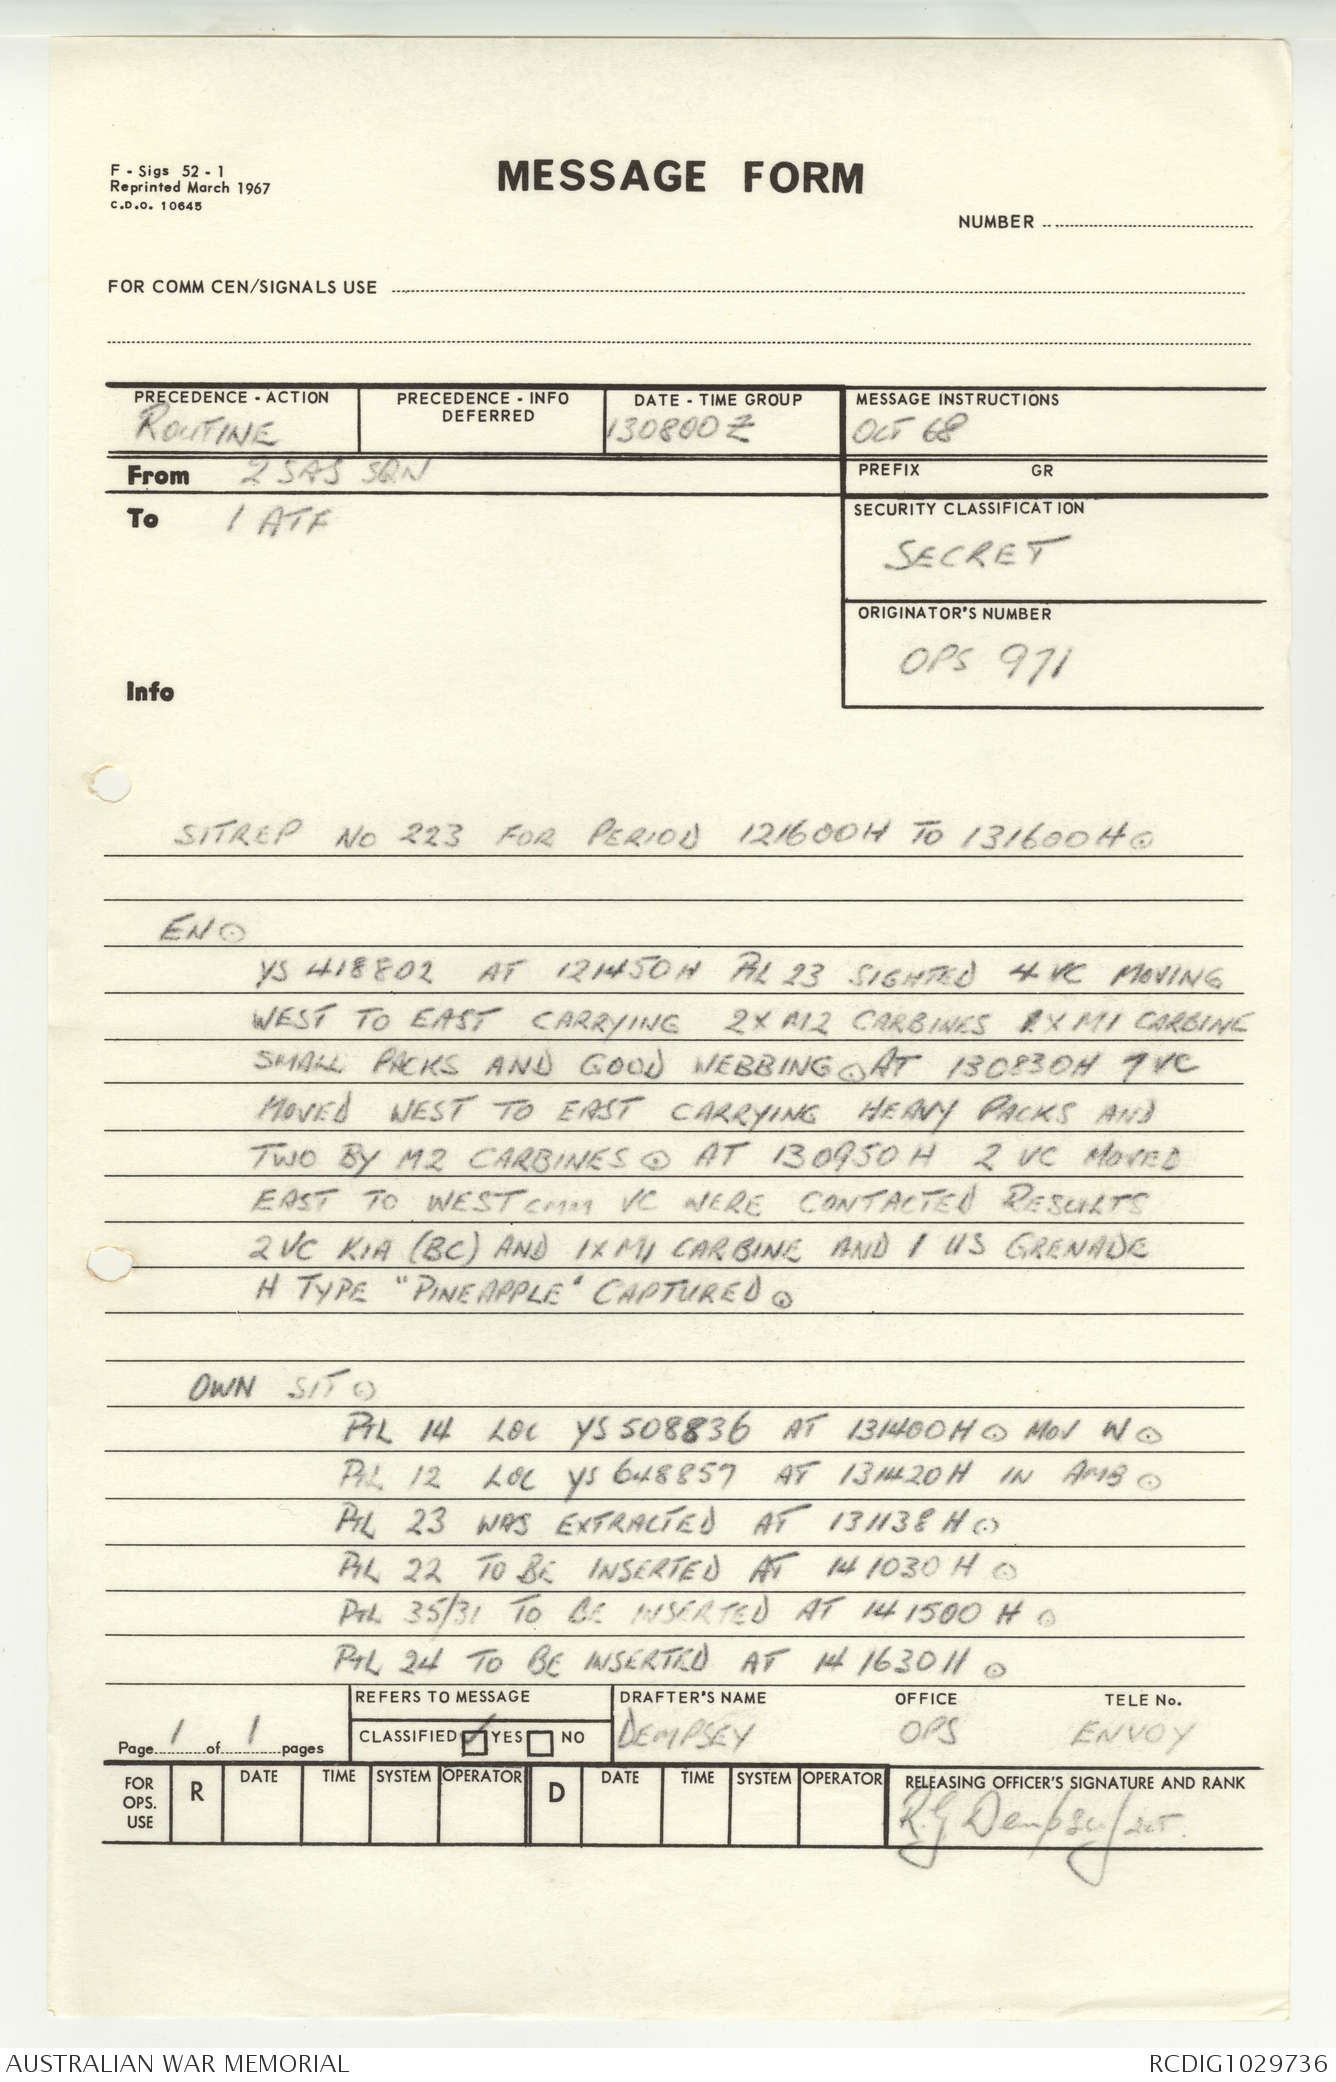 F - Sigs 52 - 1
Reprinted March 1967
C.D.O. 10645
MESSAGE FORM
NUMBER
FOR COMM CEN/SIGNALS USE
PRECEDENCE - ACTION
ROUTINE
PRECEDENCE - INFO
DEFERRED
DATE - TIME GROUP
130800Z
MESSAGE INSTRUCTIONS
OCT 68
From 2 SAS SQN
PREFIX GR
To 1 ATF
SECURITY CLASSIFICATION
SECRET
ORIGINATOR'S NUMBER
OPS 971
Info
SITREP No 223 FOR PERIOD 121600H TO 131600H⊙
EN⊙
YS 418802 AT 121450H PTL 23 SIGHTED 4 VC MOVING
WEST TO EAST CARRYING 2X M2 CARBINES 1X M1 CARBINE
SMALL PACKS AND GOOD WEBBING⊙ AT 130830H 7 VC
MOVED WEST TO EAST CARRYING HEAVY PACKS AND
TWO BY M2 CARBINES⊙ AT 130950H 2 VC MOVED
EAST TO WEST CMM VC WERE CONTACTED RESULTS
2 VC KIA (BC) AND 1X M1 CARBINE AND 1 US GRENADE
H TYPE "PINEAPPLE" CAPTURED⊙
OWN SIT⊙
PTL 14 LOC YS 508836 AT 131400H⊙ MOV W⊙
PTL 12 LOC YS 648857 AT 131420H IN AMB⊙
PTL 23 WAS EXTRACTED AT 131138H⊙
PTL 22 TO BE INSERTED AT 141030H⊙
PTL 35/31 TO BE INSERTED AT 141500H⊙
PTL 24 TO BE INSERTED AT 141630H⊙
Page 1 of 1 pages
REFERS TO MESSAGE
CLASSIFIED YES NO
DRAFTER'S NAME OFFICE TELE No.
DEMPSEY OPS ENVOY
FOR OPS. USE
R DATE TIME SYSTEM OPERATOR
D DATE TIME SYSTEM OPERATOR
RELEASING OFFICER'S SIGNATURE AND RANK
R.G Dempsey
AUSTRALIAN WAR MEMORIAL
RCDIG1029736